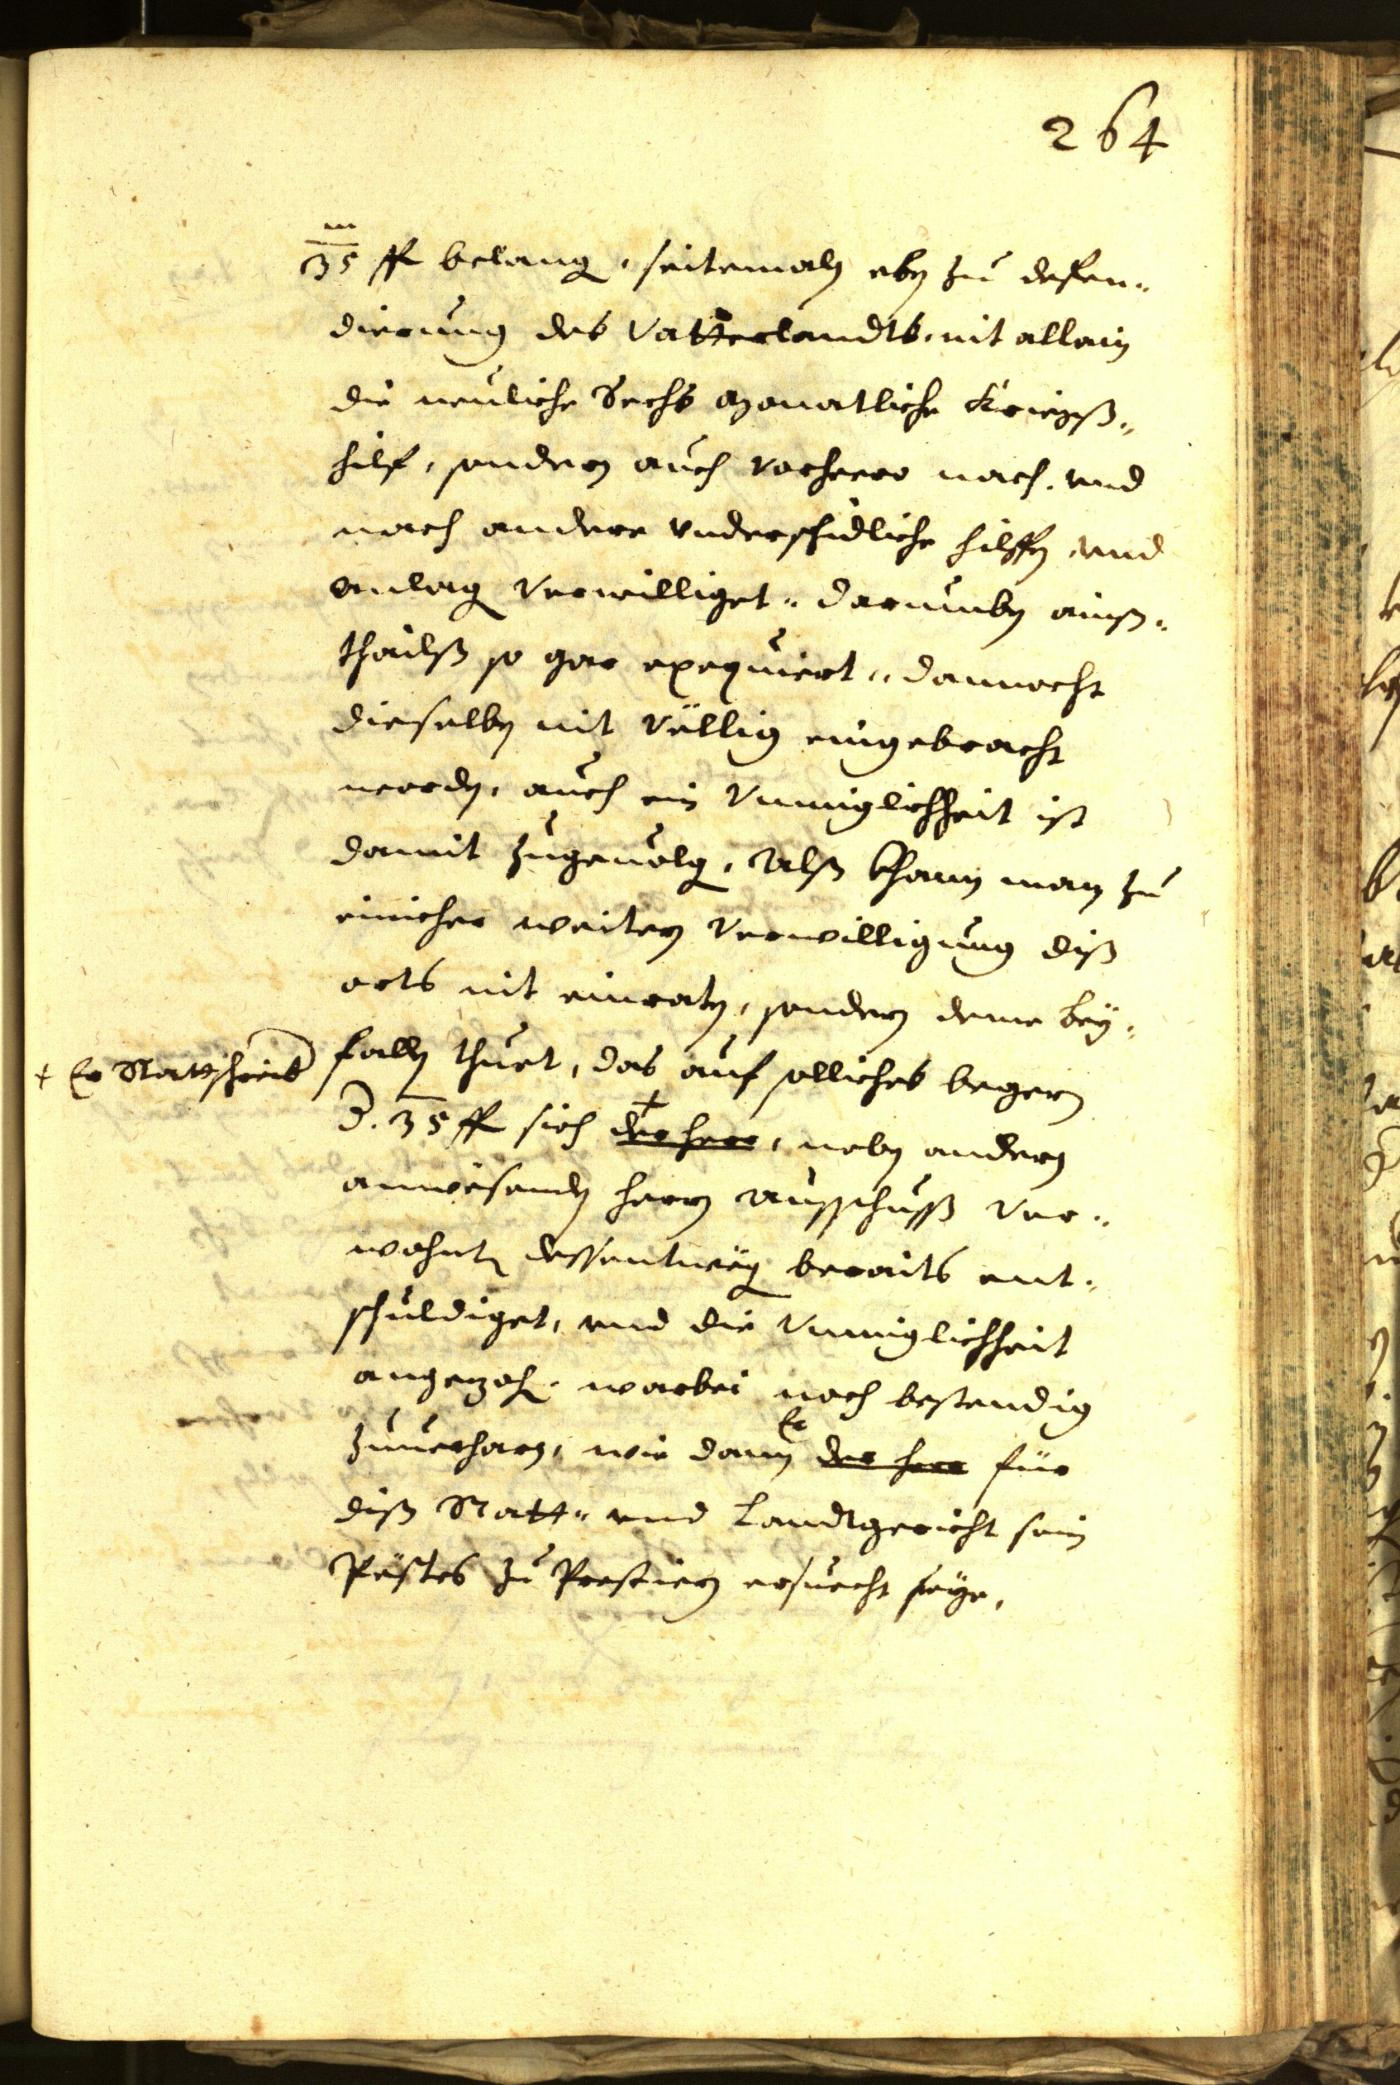 264
m
35 ff belang, seitemaln eben zu defen¬
dierung des Vatterlandts, nit allain
die neuliche Sechs monatliche Kriegß¬
hilf, sondern auch vorhero nach, vnd
nach andere vnderschidliche hilffen, vnd
anlag verwilliget, darumben ainß¬
thailß so gar exequiert, dannocht
dieselben nit völlig eingebracht
worden, auch ein Vnmiglichheit ist
damit zugeuolg, Alß khann man zu
einicher weitern Verwilligung diß
orts nit einraten, sondern deme bey¬
+ Er Stattschreib
fallen thuet, das auf solliches begern
d. 35 ff sich + der herr, neben andern
anwesenden herrn Ausschuß ver¬
wohnt dessentweg beraits ent¬
schuldiget, vnd die Vnmiglichheit
angezogen, warbei noch bestendig
zuuerharn, wie dann Er der herr für
diß Statt- vnd Landtgericht sein
Pestes zu Prestiern ersuecht seye,